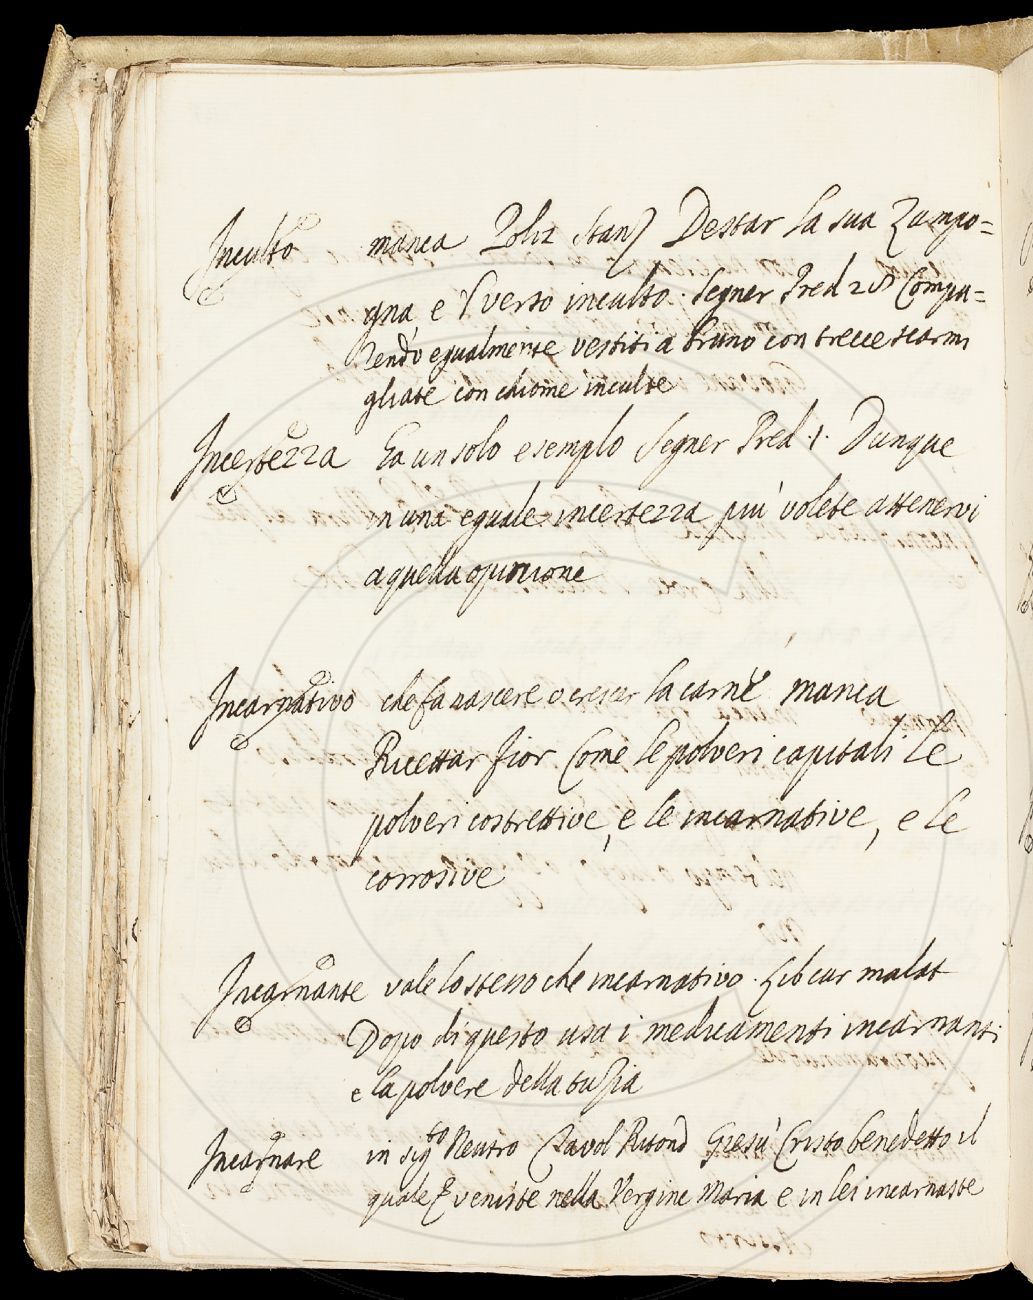 Inculto manca Poliz Stanz Destar la sua Zampo=
gna e 'l verso inculto. Segner Pred 28 Compa=
rendo egualmente vestiti a bruno con trecce scarmi
gliate con chiome inculte
Incertezza Ha un solo esemplo Segner Pred. 1. Dunque
in una eguale incertezza più volete attenervi
a quella opinione
Incarnativo che fa nascere o crescer la carne manca
Ricettar fior Come le polveri capitali le
polveri costrettive, e le incarnative, e le
corrosive
Incarnante vale lo stesso che incarnativo. Lib cur malat
Dopo di questo usa i medicamenti incarnanti
e la polvere della tuzia
Incarnare in sigto Neutro Tavol Ritond Giesù Cristo benedetto il
quale veniste nella Vergine Maria e in lei incarnaste